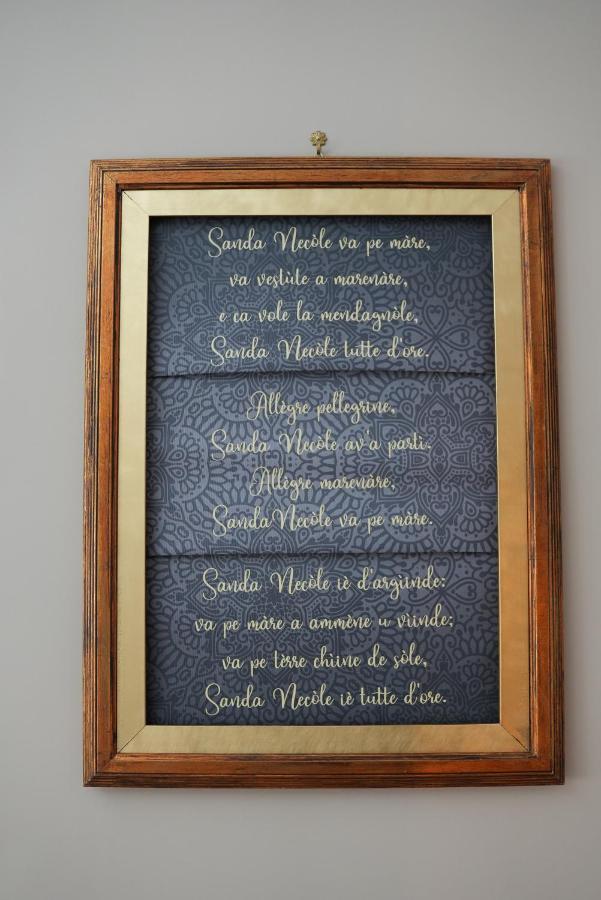 Sanda Necòle va pe màre,
va vestùte a marenàre,
e ca vole la mendagnòle,
Sanda Necòle tutte d'ore.
Allègre pellegrine,
Sanda Necòle av'a partì.
Allègre marenàre,
Sanda Necòle va pe màre.
Sanda Necòle iè d'argiùnde:
va pe màre a ammène u vìinde;
va pe tèrre chìine de sòle,
Sanda Necòle iè tutte d'ore.